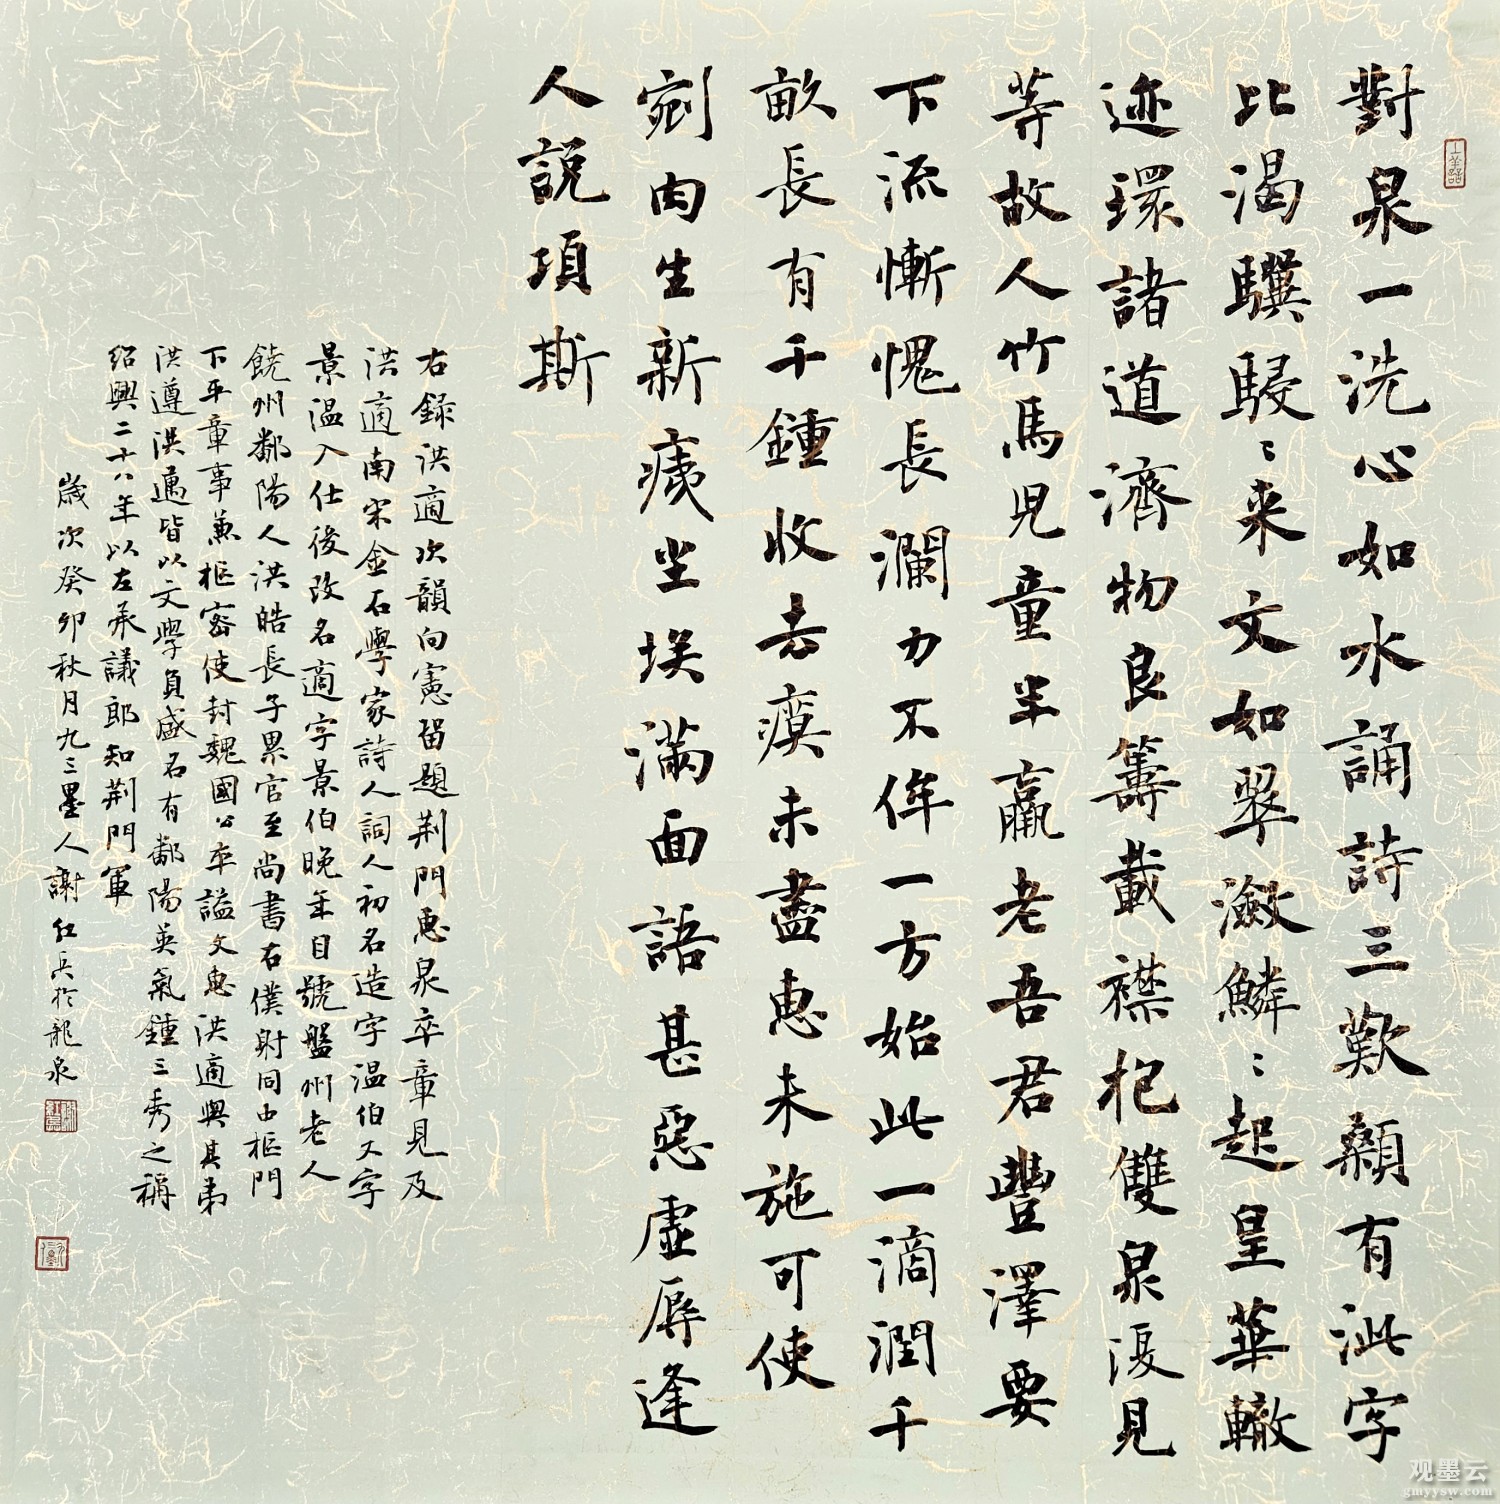 對泉一洗心如水誦詩三歎顙有泚字
比渴驥駸〻来文如翠瀲鱗〻起皇華轍
迹環諸道濟物良籌載襟杞雙泉渡見
等故人竹馬児童半羸老吾君豐澤要
下流慚愧長瀾力不侔一方始此一滴潤千
畝長有千鍾收去瘼未盡惠未施可使
剜肉生新痍坐埃滿面語甚惡虛辱逢
人説項斯
右錄洪適次韻向憲留題荆門惠泉卒章見及
洪適南宋金石學家詩人詞人初名造字温伯又字
景温入仕後改名適字景伯晚年自號盤州老人
饒州鄱陽人洪皓長子累官至尚書右僕射同中樞門
下平章事兼樞密使封魏國公卒謚文惠洪適與其弟
洪遵洪邁皆以文學負盛名有鄱陽英氣鍾三秀之稱
紹興二十八年以左承議郎知荆門軍
歲次癸卯秋月九三墨人謝紅兵於龍泉
观墨云
gmyysw.com